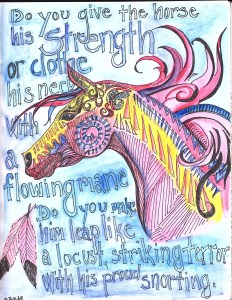 Do you give the horse
his Strength
or clothe
his neck
with
a
flowing mane
Do you make
him leap like
a locust striking terror
with his proud
snorting.